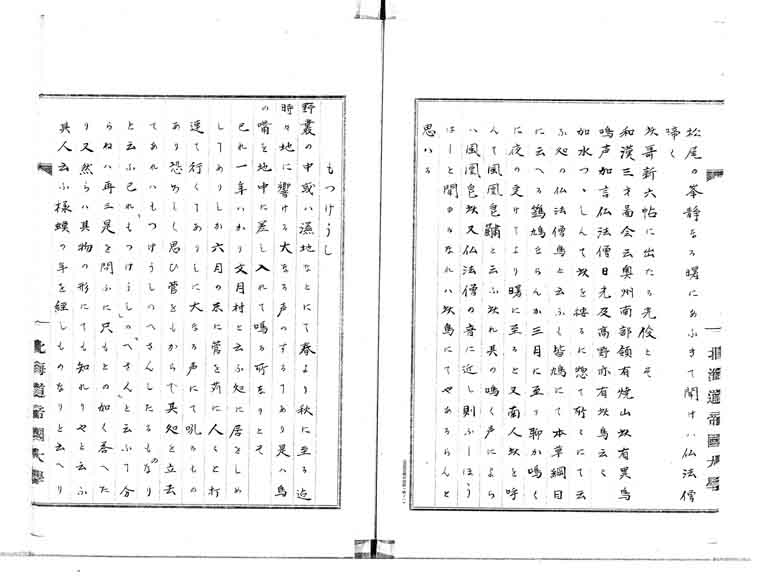 松尾の峯静なる曙にあふきて聞けハ仏法僧
啼く
此哥新六帖に出たる光俊とそ
和漢三才啚会云奥州南部領有焼山此有異鳥
鳴声如言仏法僧日光及高野亦有此鳥云々
加水つゝしんて此を按るに惣て所々にて云
ふ処の仏法僧鳥と云ふも皆鳩にて本草綱目
に云へる鶴鳩ならんか三月に至り聊か鳴く
に夜の更けてより曙に至ると又南人此を呼
んて鳳凰皀鷫と云ふ此れ其の鳴く声によら
ハ鳳凰皀此又仏法僧の音に近し則ふーほう
はーと聞ゆるなれハ此鳥にてやあるらんと
思ハる
もつけうし
野叢の中或ハ濕地なとにて春より秋に至る迄
時々地に響ける大なる声のするてあり是ハ鳥
の嘴を地中に差し入れて鳴る所なりとそ
已れ一年ハかり文月村と云ふ処に居をしめ
してありしか六月の末に菅を苅に人々と打
連て行くてありしに大なる声にて吼るもの
あり恐ろしく思ひ菅をもからて其処を立去
てあれハもつけうしのへさんしたるものなり
と云ふ已れ「もつけうし」の「へさん」と云ふて分
らねハ再三是を問ふに只もとの如く答へた
り又然らハ其物の形にても知れりやと云ふ
具人云ふ様蟆の年を經しものなりと云へり
北海道帝國大學
北海道帝國大學